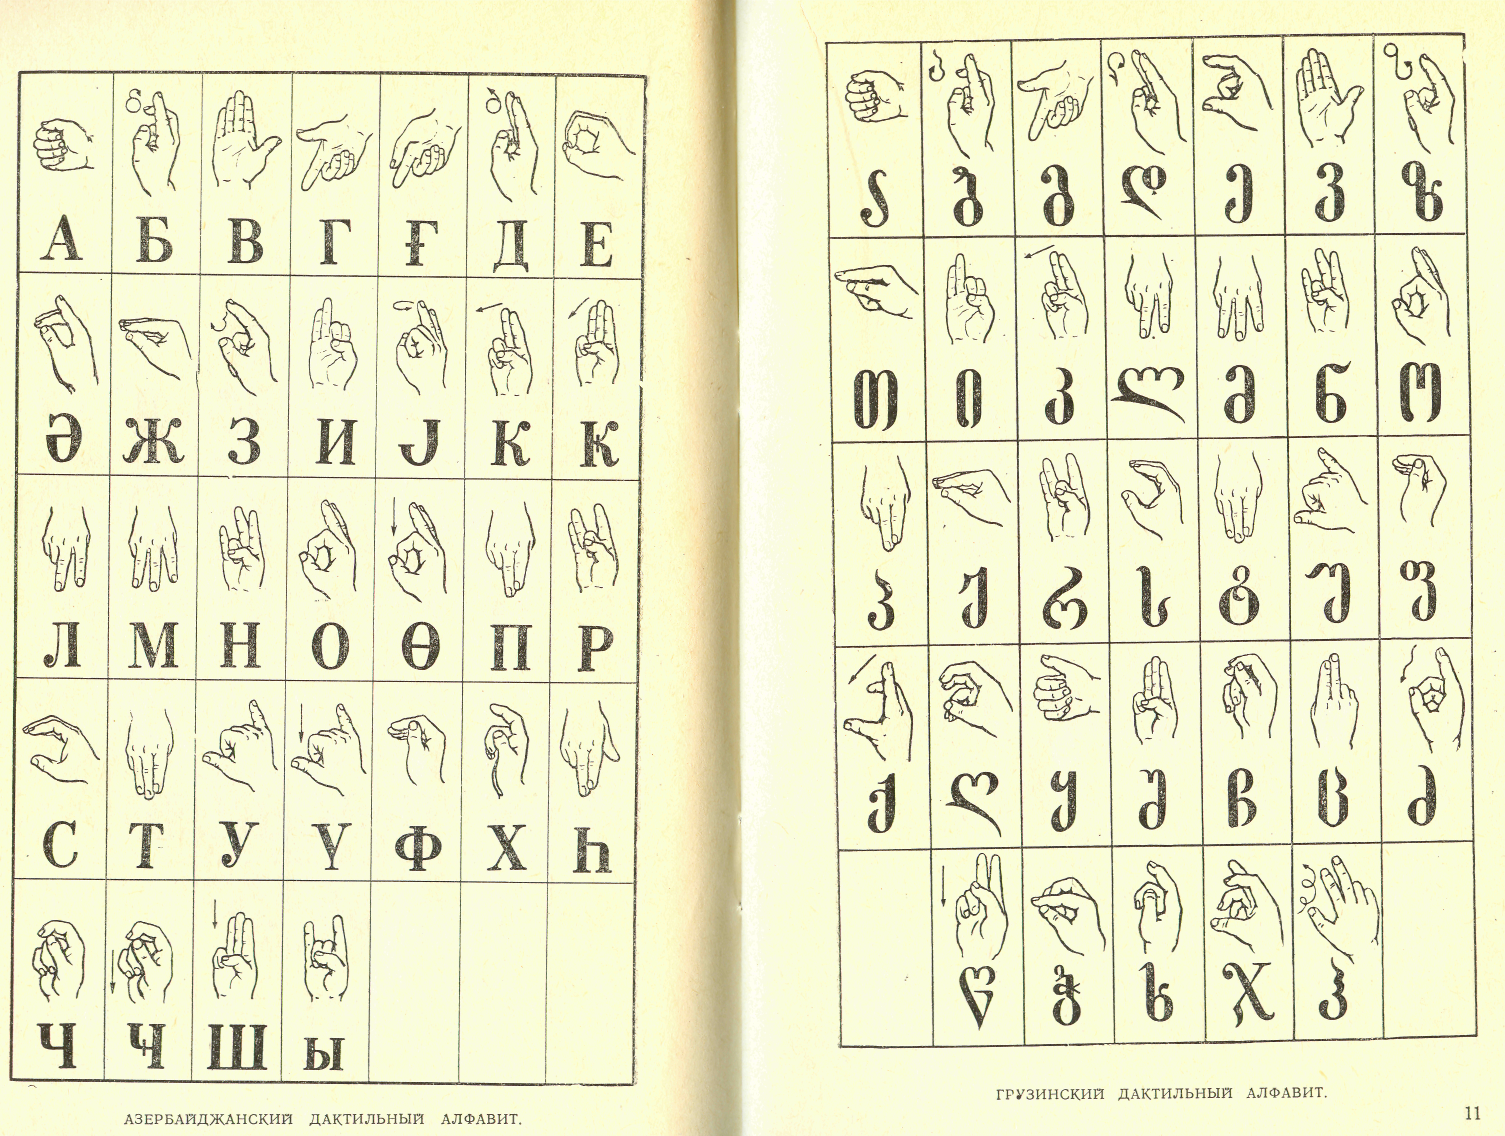 А Б В Г Ғ Д Е
Ә Ж З И Ј К Ҝ
Л М Н О Ө П Р
С Т У Ү Ф Х Һ
Ч Ҹ Ш Ы
АЗЕРБАЙДЖАНСКИЙ ДАКТИЛЬНЫЙ АЛФАВИТ.
ა ბ გ დ ე ვ ზ
თ ი კ ლ მ ნ ო
პ ჟ რ ს ტ უ ფ
ქ ღ ყ შ ჩ ც ძ
წ ჭ ხ ჯ ჰ
ГРУЗИНСКИЙ ДАКТИЛЬНЫЙ АЛФАВИТ.
11